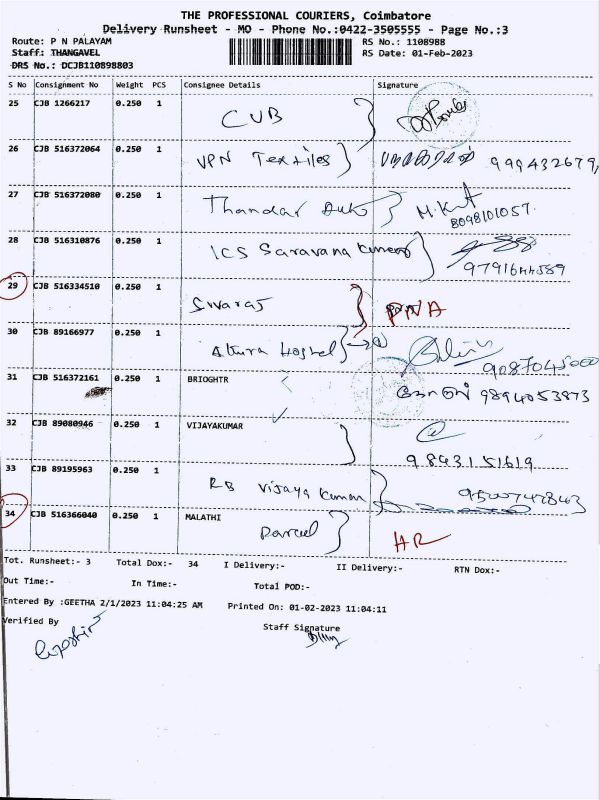 THE PROFESSIONAL COURIERS, Coimbatore
Delivery Runsheet - MO - Phone No.:0422-3505555 - Page No.:3
Route: P N PALAYAM RS No.: 1108988
Staff: THANGAVEL RS Date: 01-Feb-2023
DRS No.: DCJB110898803
S No Consignment No Weight PCS Consignee Details Signature
25 CJB 1266217 0.250 1 CUB
26 CJB 516372064 0.250 1 VPN Textiles 999432679,
27 CJB 516372080 0.250 1 Thandar Auto 8098101057.
28 CJB 516310876 0.250 1 ICS Saravana Kumar 9791644589
29 CJB 516334510 0.250 1 Sivaraj PNA
30 CJB 89166977 0.250 1 Hostel 9087045000
31 CJB 516372161 0.250 1 BRIOGHTR 9894053873
32 CJB 89080946 0.250 1 VIJAYAKUMAR 9843151619
33 CJB 89195963 0.250 1 RB Vijaya Kumar
34 CJB 516366040 0.250 1 MALATHI Parcel HR
Tot. Runsheet:- 3 Total Dox:- 34 I Delivery:- II Delivery:- RTN Dox:-
Out Time:- In Time:- Total POD:-
Entered By :GEETHA 2/1/2023 11:04:25 AM Printed On: 01-02-2023 11:04:11
Verified By Staff Signature